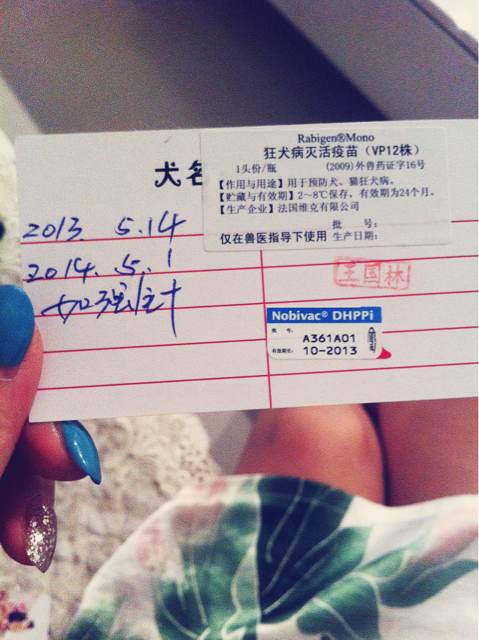 Rabigen®Mono
狂犬病灭活疫苗（VP12株）
1头份/瓶 (2009)外兽药证字16号
【作用与用途】用于预防犬、猫狂犬病。
【贮藏与有效期】2~8℃保存，有效期为24个月。
【生产企业】法国维克有限公司
批 号：
仅在兽医指导下使用 生产日期：
犬名
2013. 5.14
2014. 5. 1
加强针
王国林
Nobivac® DHPPi
批 号：
A361A01
有效期至： 10-2013